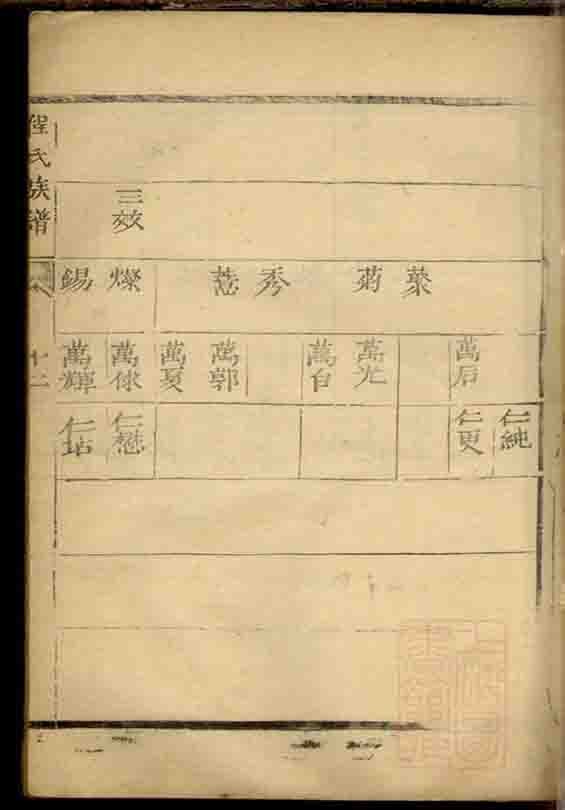 三效
棻
菊
秀
薏
燦
錫
萬后
萬光
萬自
萬郭
萬夏
萬俅
萬輝
仁純
仁更
仁懋
仁玷
程氏族譜
十二